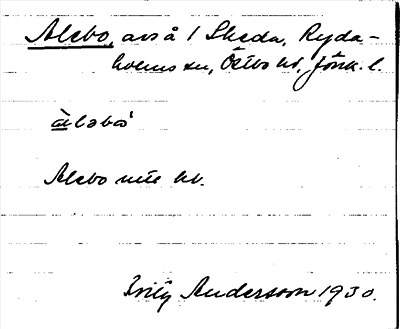 Alebo, avs å 1 Skeda, Ryda-
holms sn, Östbo hd, Jönk. l.
àləbo
Alebo mtl kb.
Andersson 1930.